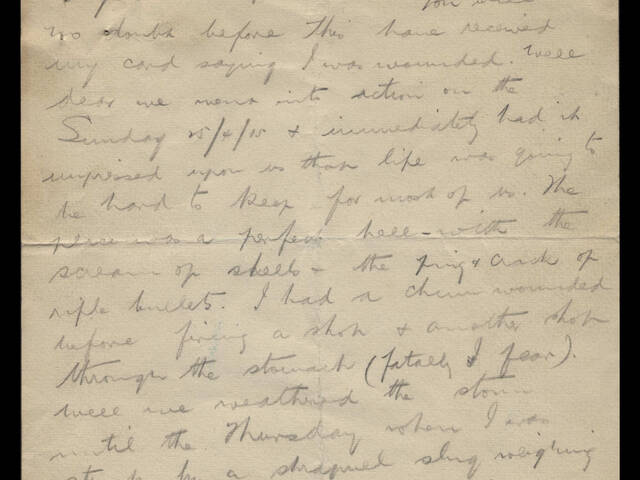 You will
no doubt before this have received
my card saying I was wounded. Well
dear we went into action on the
Sunday 25/4/15 & immediately had it
impressed upon us that life was going to
be hard to keep for most of us. The
place was a perfect hell - with the
scream of shells - the ping & crack of
rifle bullets. I had a chum wounded
before firing a shot & another shot
through the stomach (fatally I fear).
Well we weathered the storm
until the Thursday when I was
struck by a shrapnel slug weighing